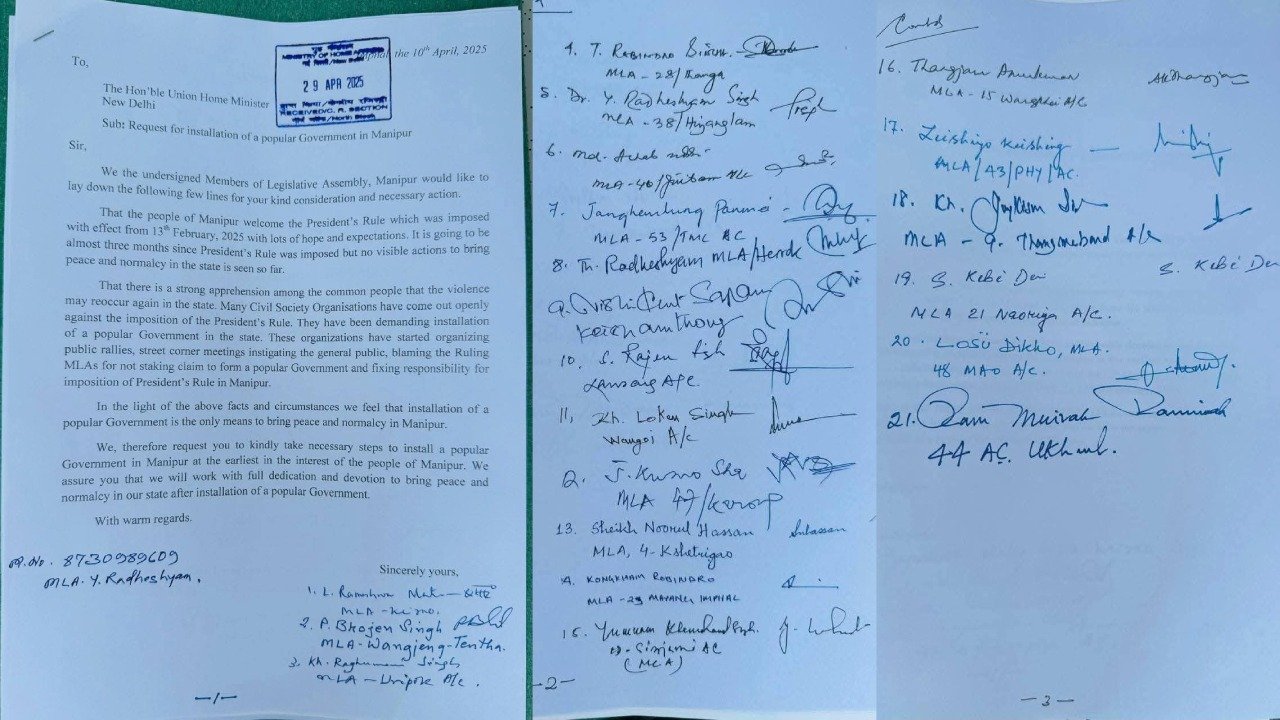 Imphal, the 10th April, 2025
To,
गृह मंत्रालय
MINISTRY OF HOME AFFAIRS
नई दिल्ली/New Delhi
29 APR 2025
RECEIVED/C. R. SECTION
नॉर्थ ब्लॉक/North Block
The Hon'ble Union Home Minister
New Delhi
Sub: Request for installation of a popular Government in Manipur
Sir,
We the undersigned Members of Legislative Assembly, Manipur would like to
lay down the following few lines for your kind consideration and necessary action.
That the people of Manipur welcome the President's Rule which was imposed
with effect from 13th February, 2025 with lots of hope and expectations. It is going to be
almost three months since President's Rule was imposed but no visible actions to bring
peace and normalcy in the state is seen so far.
That there is a strong apprehension among the common people that the violence
may reoccur again in the state. Many Civil Society Organisations have come out openly
against the imposition of the President's Rule. They have been demanding installation
of a popular Government in the state. These organizations have started organizing
public rallies, street corner meetings instigating the general public, blaming the Ruling
MLAs for not staking claim to form a popular Government and fixing responsibility for
imposition of President's Rule in Manipur.
In the light of the above facts and circumstances we feel that installation of a
popular Government is the only means to bring peace and normalcy in Manipur.
We, therefore request you to kindly take necessary steps to install a popular
Government in Manipur at the earliest in the interest of the people of Manipur. We
assure you that we will work with full dedication and devotion to bring peace and
normalcy in our state after installation of a popular Government.
With warm regards.
8730989609
MLA. Y. Radheshyam.
Sincerely yours,
1. L. Rameshwar
MLA -
2. P. Brojen Singh
MLA- Wangjing-Tentha.
3. Kh. Raghumani Singh
MLA - Uripok A/c.
-1-
4. T. ROBINDRO
MLA - 28/Thanga
5. Dr. Y. Radheshyam Singh
MLA - 38/Hiyanglam
6. Md. Achab
MLA-40/Jiribam A/c
7. Janghemlung Panmei
MLA - 53/TML AC
8. Th. Radheshyam MLA/Heirok
9. Nishikant Sapam
Keishamthong
10. S. Rajen Singh
Lamsang A/C.
11, Kh. Loken Singh
Wangoi A/c
12. J. Kumo Sha
MLA 47/Karong
13. Sheikh Noorul Hassan
MLA, 4- Kshetrigao
14. KONGKHAM ROBINDRO
MLA - 23 MAYANG IMPHAL
15. Yumnam Khemchand Singh.
Singjamei AC
(MLA)
-2-
Contd
16. Thangjam Arunkumar
MLA - 15 Wangkhei A/C
17. Leishiyo Keishing
MLA/43/PHY/AC.
18. Kh. Joykisan
MLA - 9. Thangmeiband A/c
19. S. Kebi Devi
S. Kebi Devi
MLA 21 Naoriya A/C.
20. LOSÜ DIKHO, MLA.
48 MAO A/C.
21. Ram Muivah
44 AC. Ukhrul.
-3-